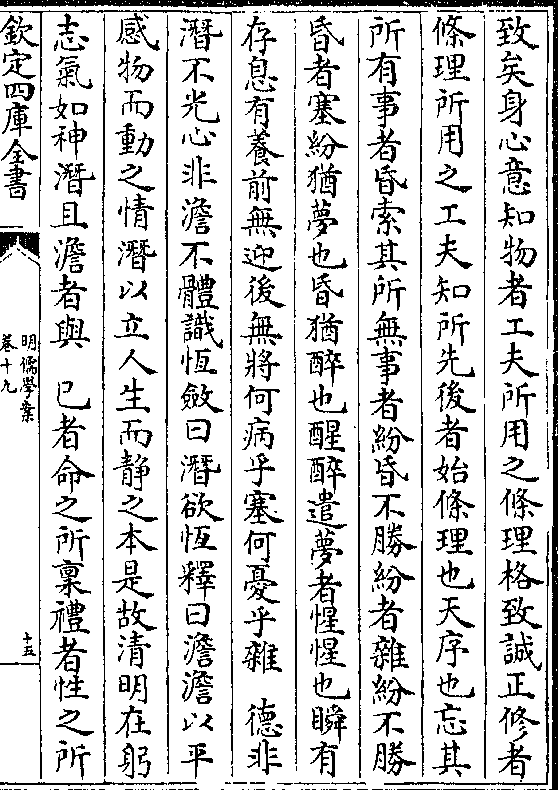 致矣身心意知物者工夫所用之條理格致誠正修者
條理所用之工夫知所先後者始條理也天序也忘其
所有事者昏索其所無事者紛昏不勝紛者雜紛不勝
昏者塞紛猶夢也昏猶醉也醒醉遣夢者惺惺也瞬有
存息有養前無迎後無將何病乎塞何憂乎雜　德非
潛不光心非澹不體識恆斂曰潛欲恆釋曰澹澹以平
感物而動之情潛以立人生而靜之本是故清明在躬
志氣如神潛且澹者與　已者命之所稟禮者性之所
欽定四庫全書
明儒學案
卷十九
十五